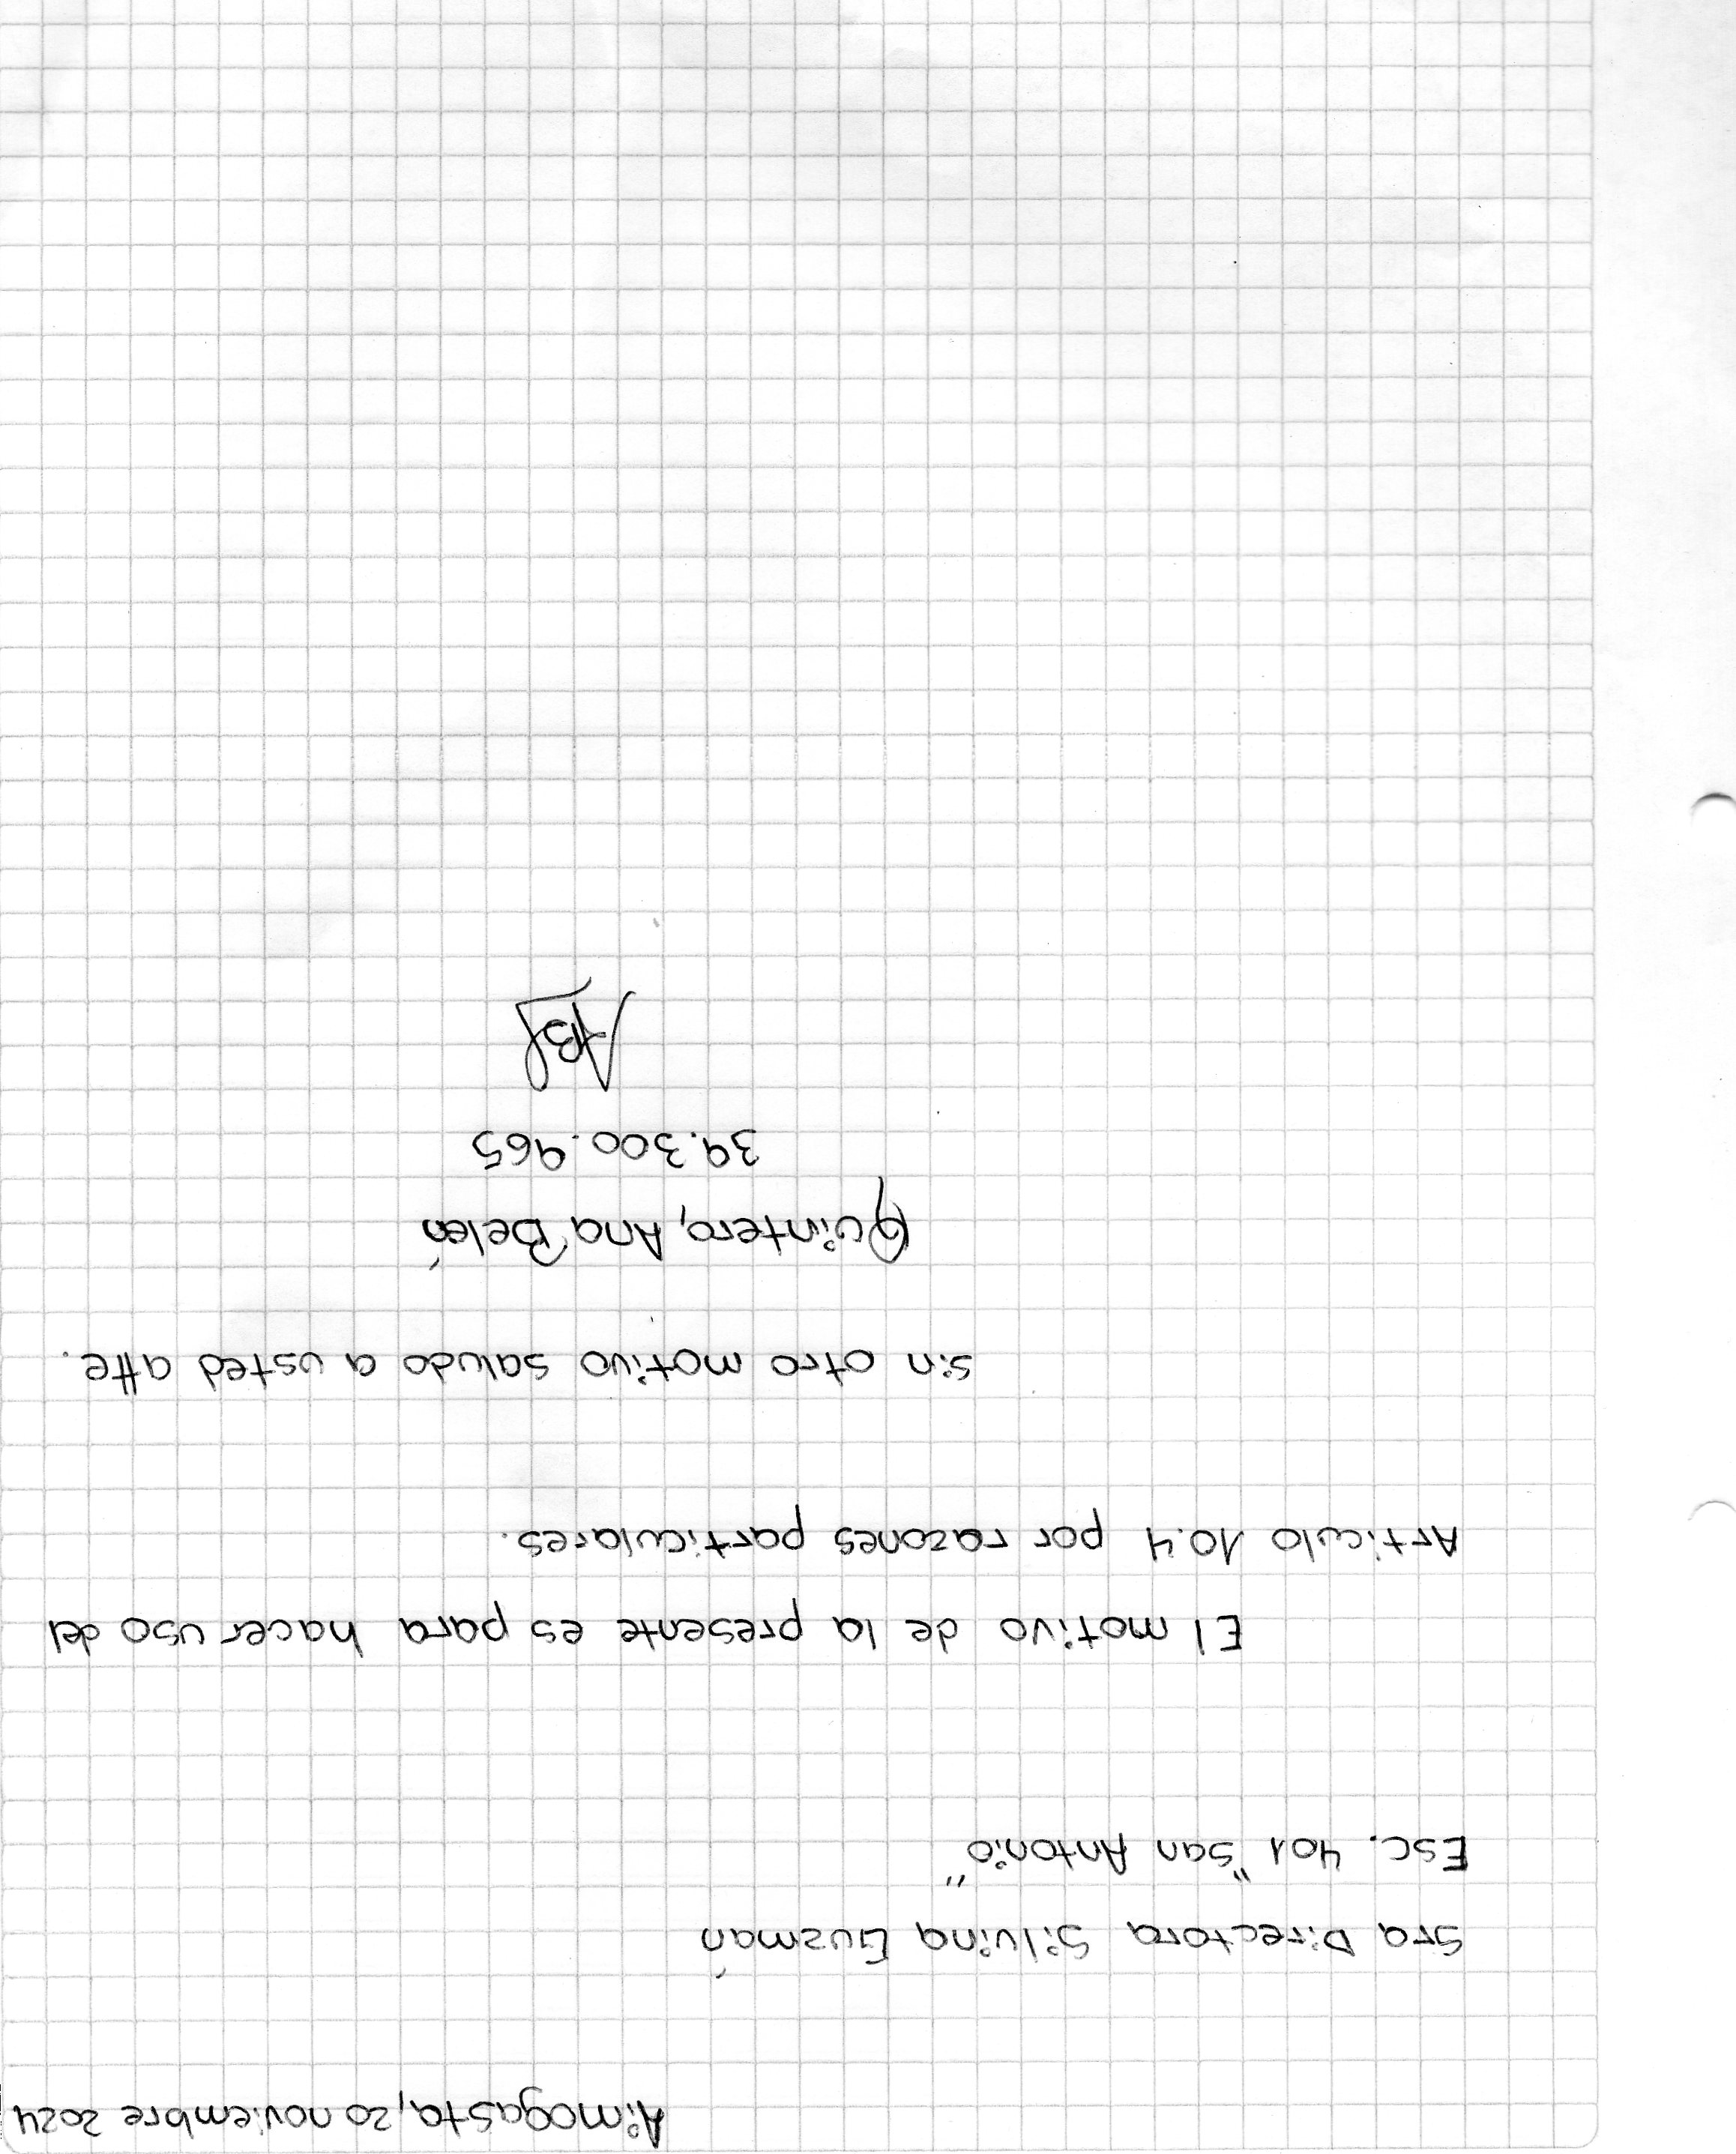 Aimogasta, 20 noviembre 2024
Sra Directora Silvina Guzmán
Esc. 401 "San Antonio"
El motivo de la presente es para hacer uso del
Artículo 10.4 por razones particulares.
sin otro motivo saludo a usted atte.
Quintero, Ana Belén
39.300.965
AB